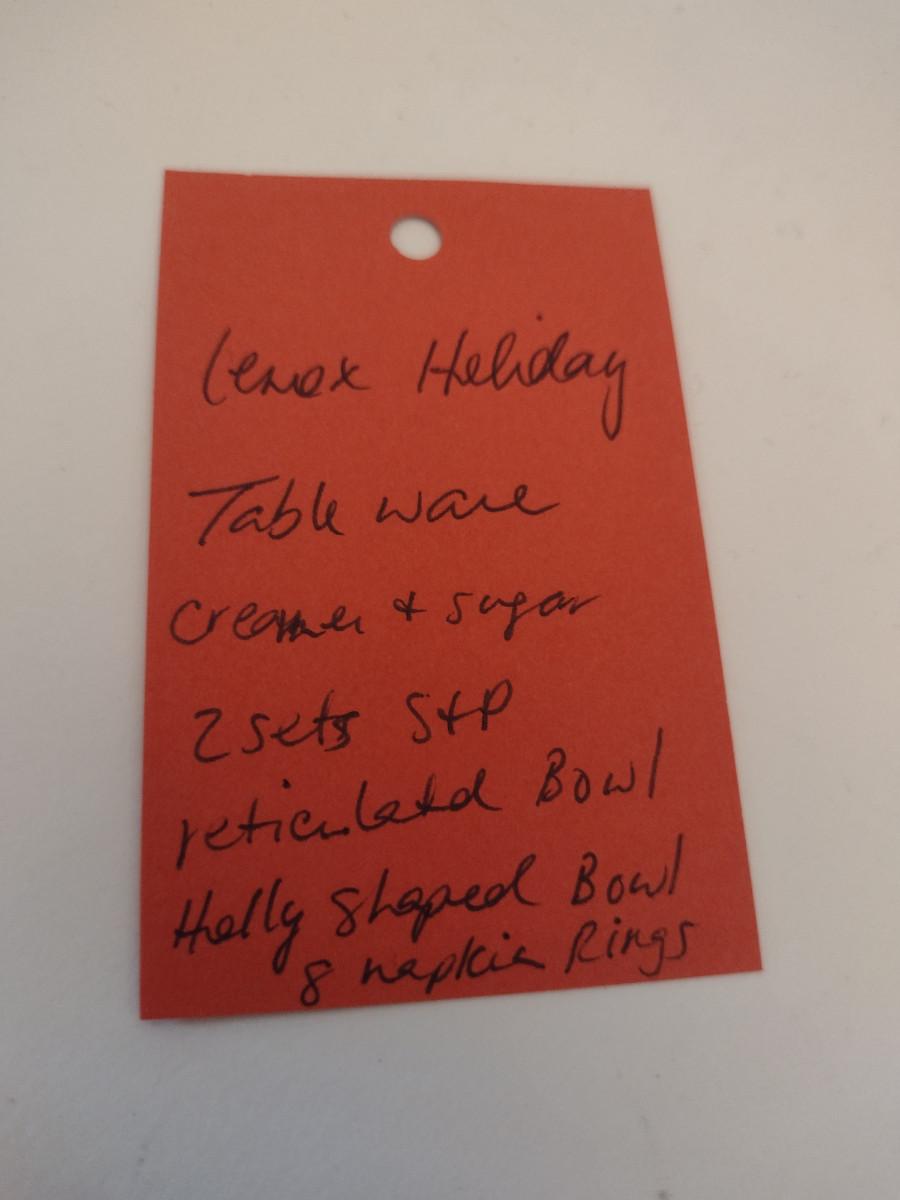 Lenox Holiday
Table ware
Creamer + sugar
2 sets S+P
reticulated Bowl
Holly shaped Bowl
8 napkin Rings